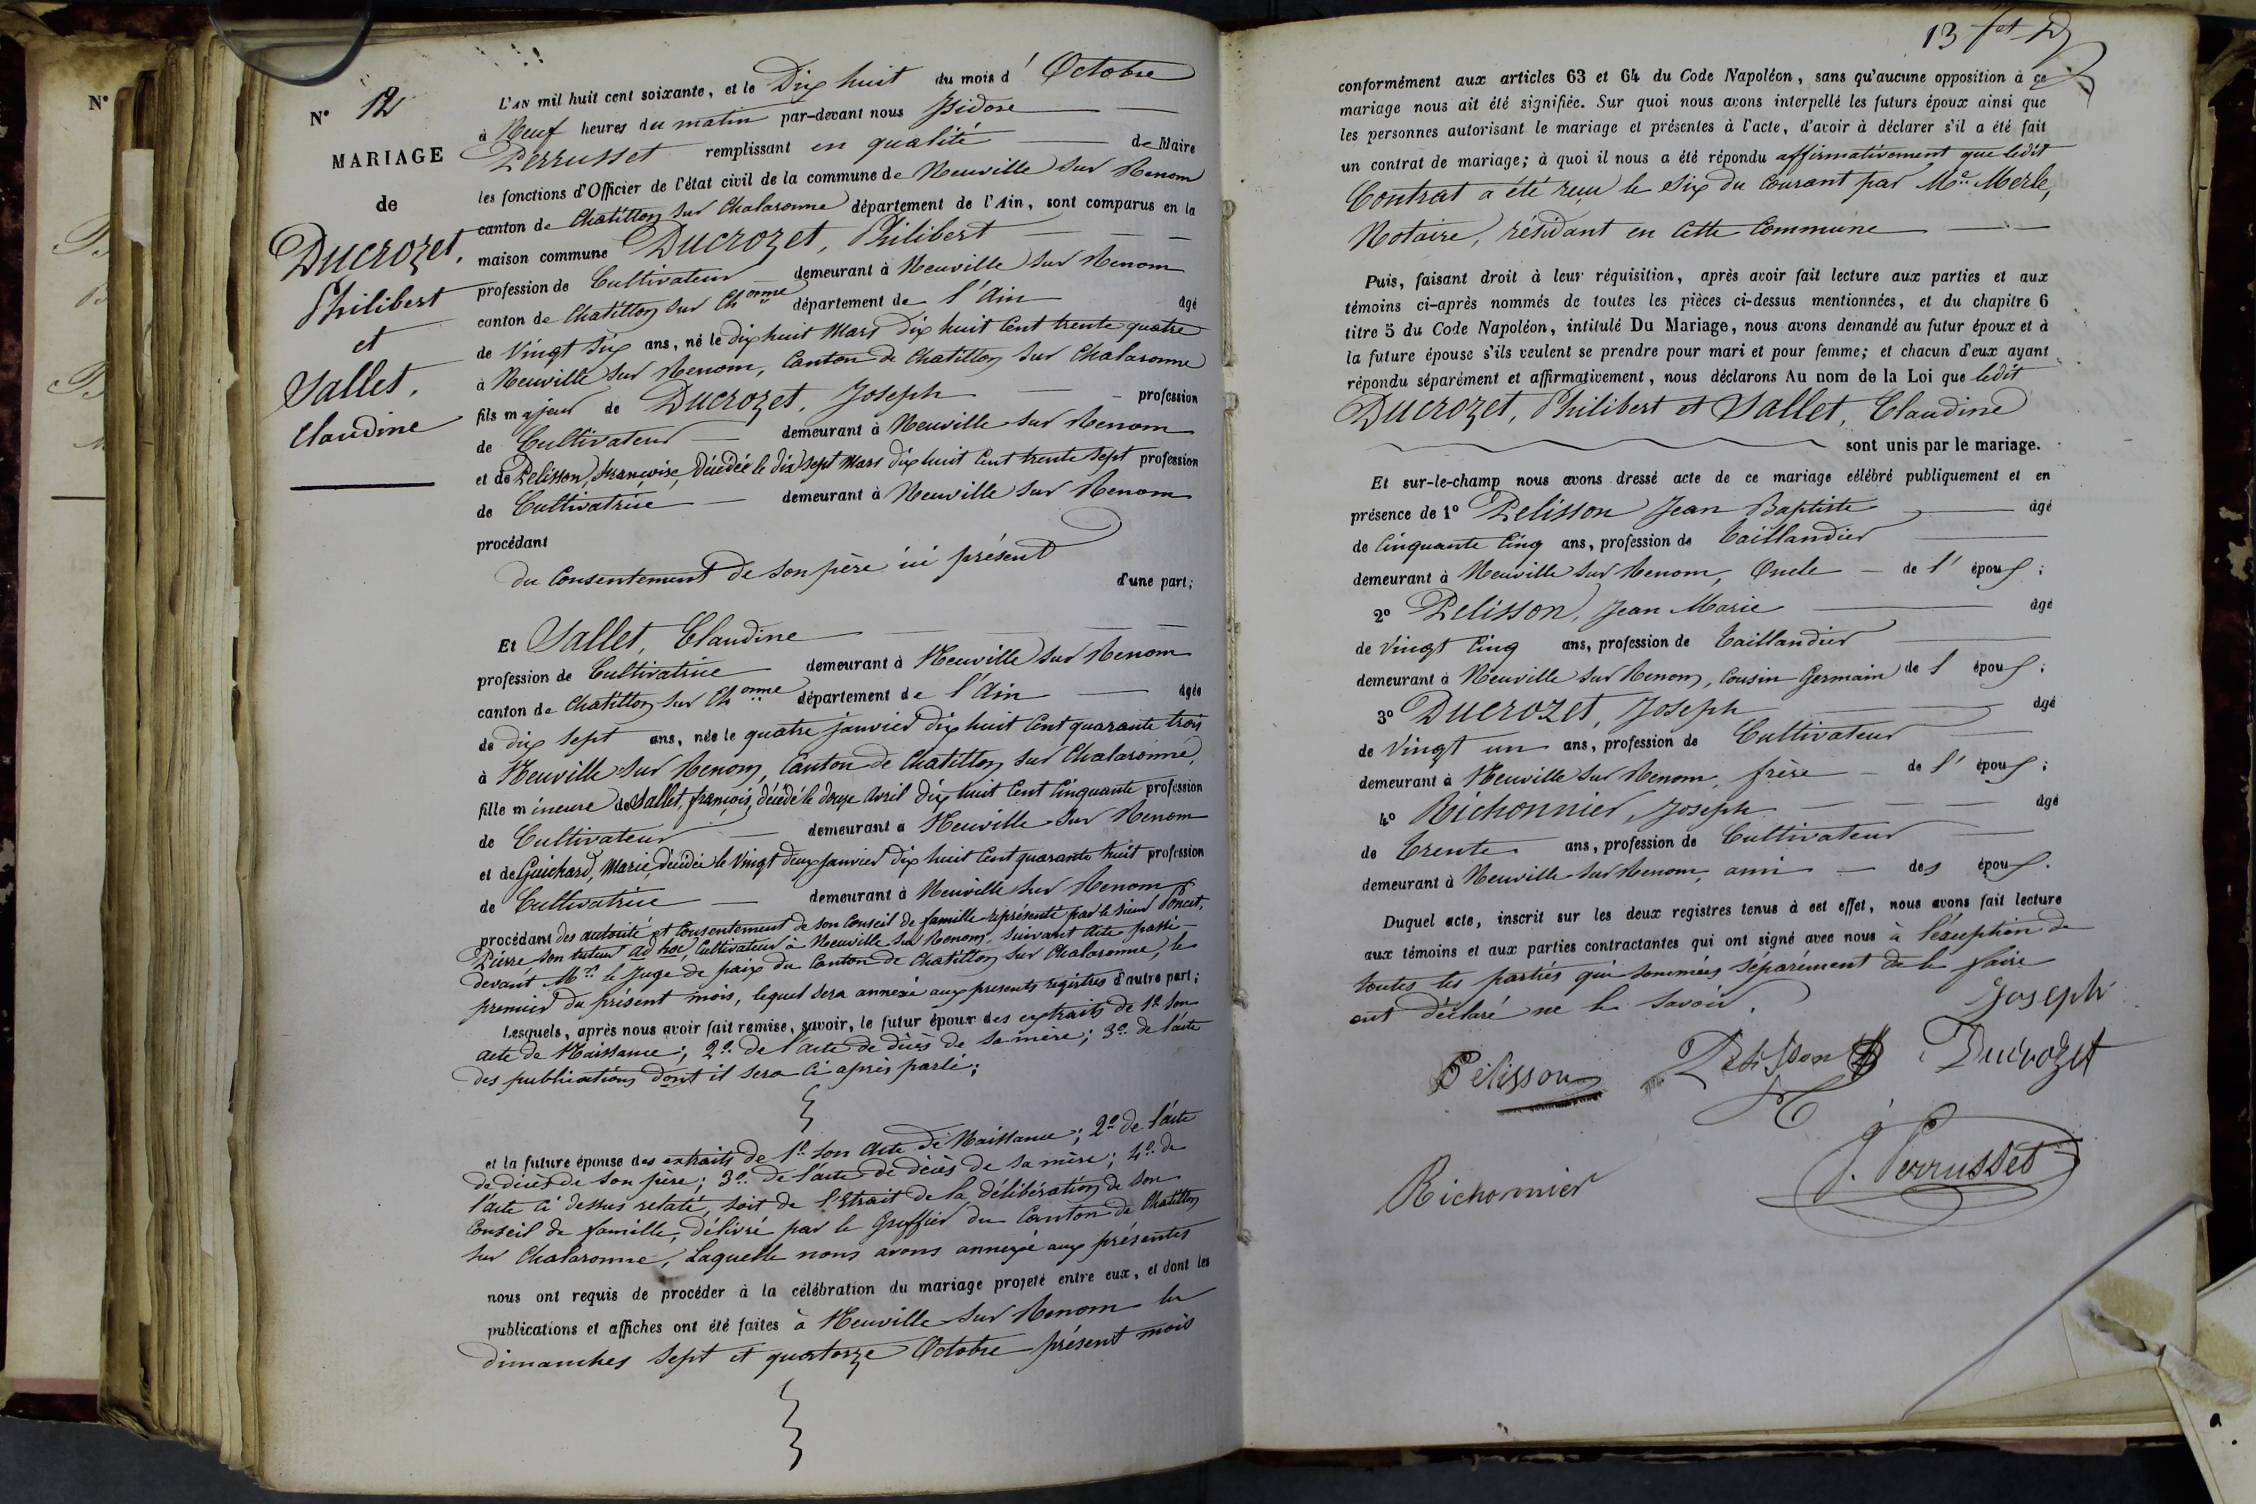 N°
N° 12
MARIAGE
de
Ducrozet,
Philibert
et
Sallet,
Claudine
L'AN mil huit cent soixante, et le Dix huit du mois d' Octobre
à Neuf heures du matin par-devant nous Isidore
Perrusset remplissant en qualité de Maire
les fonctions d'Officier de l'état civil de la commune de Neuville sur Renom
canton de Chatillon sur Chalaronne département de l'Ain, sont comparus en la
maison commune Ducrozet, Philibert
profession de Cultivateur demeurant à Neuville sur Renom
canton de Chatillon sur Chonne département de l'Ain âgé
de Vingt six ans, né le dix huit Mars dix huit Cent trente quatre
à Neuville sur Renom, Canton de Chatillon sur Chalaronne
fils majeur de Ducrozet, Joseph profession
de Cultivateur demeurant à Neuville sur Renom
et de Pelisson, françoise, décédée le dix sept Mars dix huit Cent trente sept profession
de Cultivatrice demeurant à Neuville sur Renom
procédant
du Consentement de son père ici présent
d'une part;
Et Sallet, Claudine
profession de Cultivatrice demeurant à Neuville sur Renom
canton de Chatillon sur Chonne département de l'Ain âgée
de dix sept ans, née le quatre janvier dix huit Cent quarante trois
à Neuville sur Renom, Canton de Chatillon sur Chalaronne,
fille mineure de Sallet, françois, décédé le douze Avril dix huit Cent Cinquante profession
de Cultivateur demeurant à Neuville sur Renom
et de Guichard, Marie, décédée le Vingt deux janvier dix huit Cent quarante huit profession
de Cultivatrice demeurant à Neuville sur Renom
procédant des autorité et Consentement de son Conseil de famille représenté par le sieur Poncet,
Pierre son tuteur ad hoc, Cultivateur à Neuville sur Renom, suivant acte passé
devant Mr. le Juge de paix du Canton de Chatillon sur Chalaronne, le
premier du présent mois, lequel sera annexé aux presents registres d'autre part;
Lesquels, après nous avoir fait remise, savoir, le futur époux des extraits de 1° son
acte de Naissance; 2° de l'acte de décès de sa mère; 3° de l'acte
des publications dont il sera ci après parlé;
et la future épouse des extraits de 1° son Acte de Naissance; 2° de l'acte
de décès de son père; 3° de l'acte de décès de sa mère; 4° de
l'acte ci dessus relaté, soit de l'Etrait de la délibération de son
Conseil de famille, délivré par le Greffier du Canton de Chatillon
sur Chalaronne, Laquelle nous avons annexé aux présentes
nous ont requis de procéder à la célébration du mariage projeté entre eux, et dont les
publications et affiches ont été faites à Neuville sur Renom les
dimanches sept et quatorze Octobre présent mois
13
conformément aux articles 63 et 64 du Code Napoléon, sans qu'aucune opposition à ce
mariage nous ait été signifiée. Sur quoi nous avons interpellé les futurs époux ainsi que
les personnes autorisant le mariage et présentes à l'acte, d'avoir à déclarer s'il a été fait
un contrat de mariage; à quoi il nous a été répondu affirmativement que ledit
Contrat a été reçu le six du Courant par Me. Merle,
Notaire, résidant en cette Commune
Puis, faisant droit à leur réquisition, après avoir fait lecture aux parties et aux
témoins ci-après nommés de toutes les pièces ci-dessus mentionnées, et du chapitre 6
titre 5 du Code Napoléon, intitulé Du Mariage, nous avons demandé au futur époux et à
la future épouse s'ils veulent se prendre pour mari et pour femme; et chacun d'eux ayant
répondu séparément et affirmativement, nous déclarons Au nom de la Loi que ledit
Ducrozet, Philibert et Sallet, Claudine
sont unis par le mariage.
Et sur-le-champ nous avons dressé acte de ce mariage célébré publiquement et en
présence de 1° Pelisson Jean Baptiste âgé
de Cinquante Cinq ans, profession de Taillandier
demeurant à Neuville sur Renom, Oncle de l' époux;
2° Pelisson, Jean Marie âgé
de Vingt Cinq ans, profession de Taillandier
demeurant à Neuville sur Renom, Cousin Germain de l époux;
3° Ducrozet, Joseph âgé
de Vingt un ans, profession de Cultivateur
demeurant à Neuville sur Renom, frère de l' époux;
4° Richonnier, Joseph âgé
de Trente ans, profession de Cultivateur
demeurant à Neuville sur Renom, ami des époux.
Duquel acte, inscrit sur les deux registres tenus à cet effet, nous avons fait lecture
aux témoins et aux parties contractantes qui ont signé avec nous à l'exception de
toutes les parties qui sommées séparément de le faire
ont déclaré ne le savoir.
Joseph
Pelisson Pelisson Ducrozet
Richonnier J. Perrusset